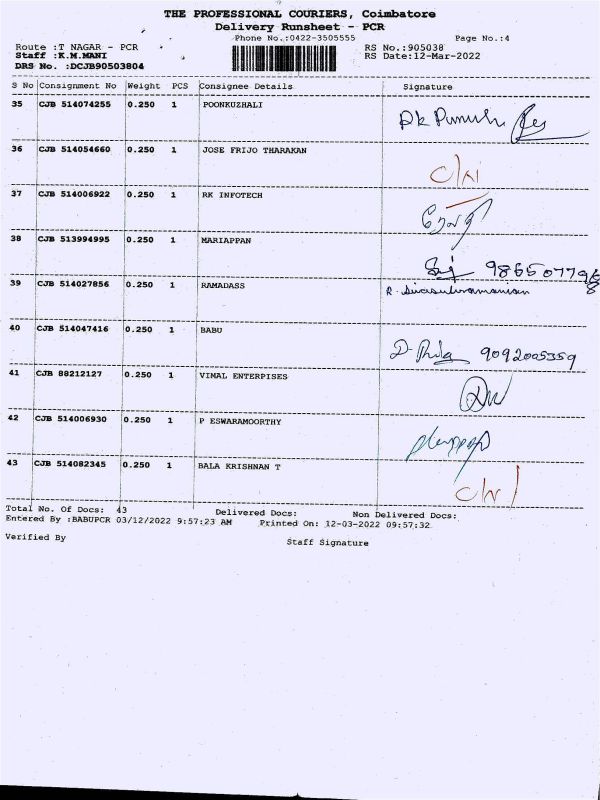 THE PROFESSIONAL COURIERS, Coimbatore
Delivery Runsheet - PCR
Phone No.:0422-3505555 Page No.:4
Route :T NAGAR - PCR RS No.:905038
Staff :K.M.MANI RS Date:12-Mar-2022
DRS No. :DCJB90503804
S No Consignment No Weight PCS Consignee Details Signature
35 CJB 514074255 0.250 1 POONKUZHALI
36 CJB 514054660 0.250 1 JOSE FRIJO THARAKAN
37 CJB 514006922 0.250 1 RK INFOTECH
38 CJB 513994995 0.250 1 MARIAPPAN
39 CJB 514027856 0.250 1 RAMADASS R. Sivasubramanian
40 CJB 514047416 0.250 1 BABU 9092005359
41 CJB 88212127 0.250 1 VIMAL ENTERPISES
42 CJB 514006930 0.250 1 P ESWARAMOORTHY
43 CJB 514082345 0.250 1 BALA KRISHNAN T
Total No. Of Docs: 43 Delivered Docs: Non Delivered Docs:
Entered By :BABUPCR 03/12/2022 9:57:23 AM Printed On: 12-03-2022 09:57:32
Verified By Staff Signature